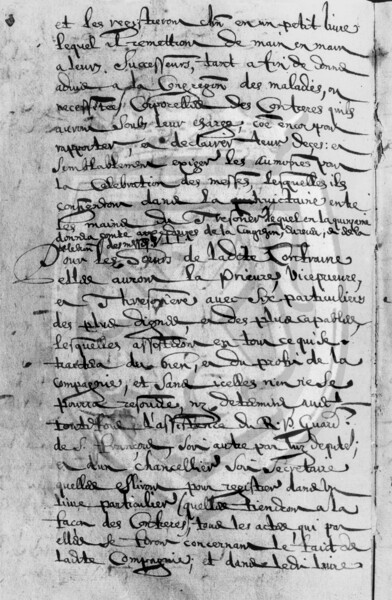 et les registreront chũn en un petit livre
lequel ilz remettront de main en main
a leurs Successeurs, tant a fin de donner
advis a la Congregõn des maladies, ou
necessitez Corporelles des Confreres quilz
auront soubs leur charge, cõe encor pour
rapporter, et declairer leur deces: et
semblablement exiger les aumosnes pour
la Celebration des messes, lesquelles ilz
dans la quinzaine entre
les mains du Tresorier lequel en la quinzaine
donra compte aux de la Congregõn, de la
des messes
Pour les Sœurs de ladite Confrairie
elles auront la Prieure, Viceprieure,
et Thresoriere avec Six particulieres
des plus dignes, et des plus capables,
lesquelles assisteront en tout ce qui se
traictera du bien, et du profit de la
Compagnie, et sans icelles rien ne se
pourra resoudre, ny determiner
toutesfois l'assistance du R. P. Guard.
de S. François, ou autre par luy deputé,
et d'un chancellier ou Secretaire
quelles esliront pour registrer dans un
livre particulier (quelles tiendront a la
façon des Confreres) tous les actes qui par
elles se feront concernant le faict de
ladite Compagnie; et dans ledit livre